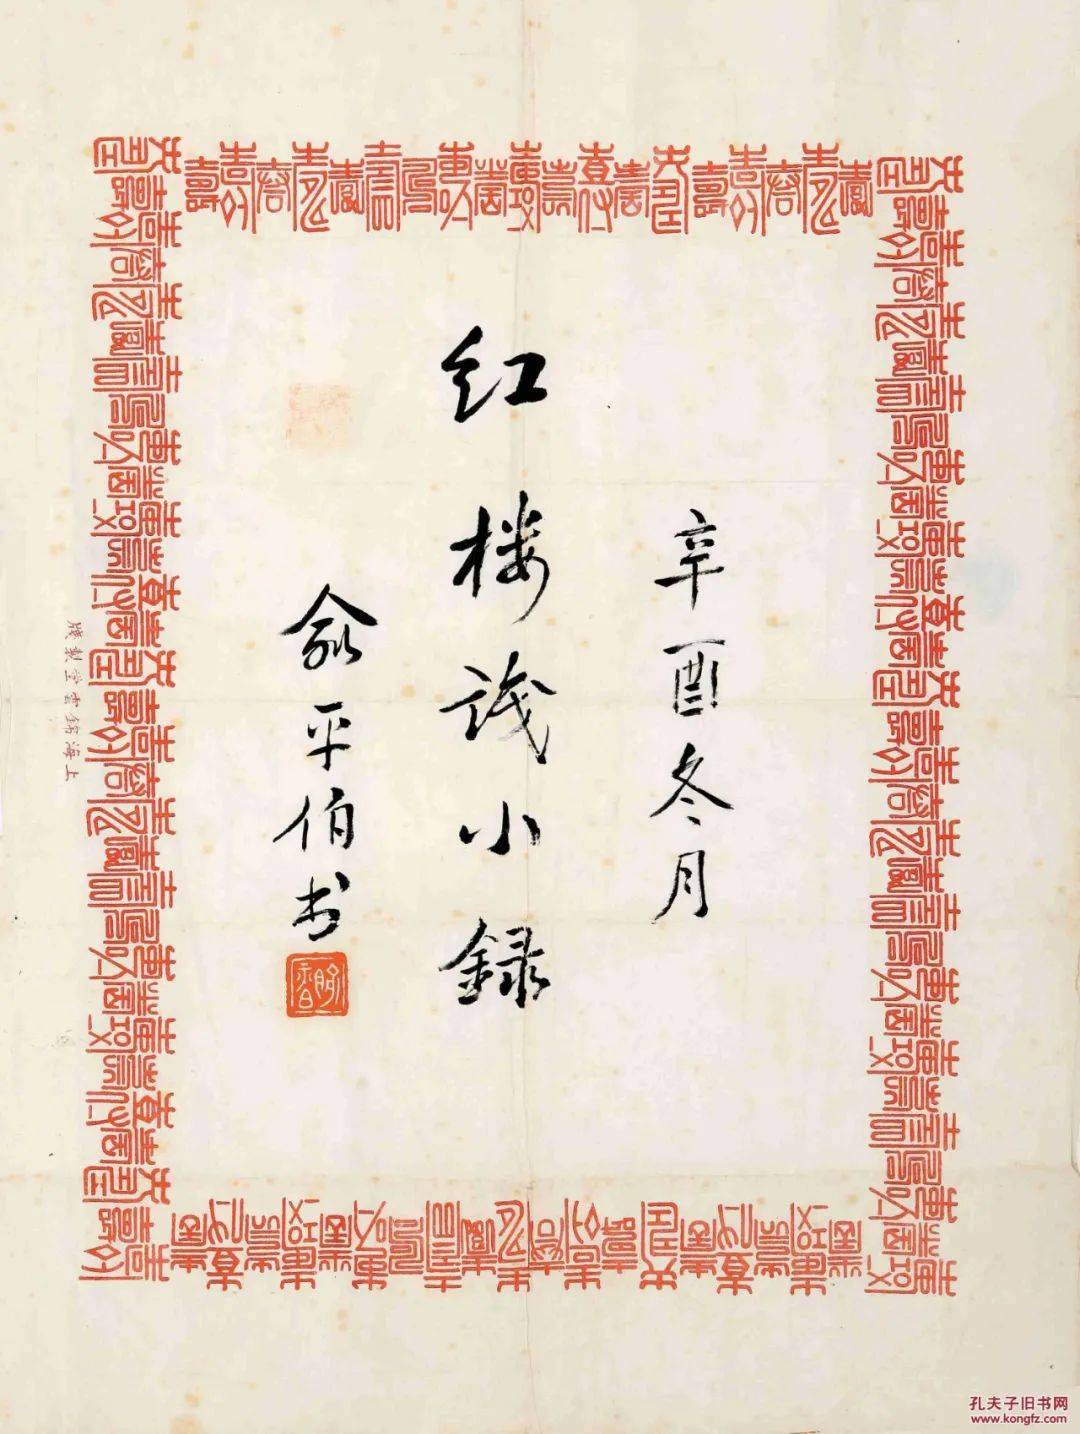 辛酉冬月
红楼识小録
俞平伯书
上海錦雲堂製牋
孔夫子旧书网
www.kongfz.com